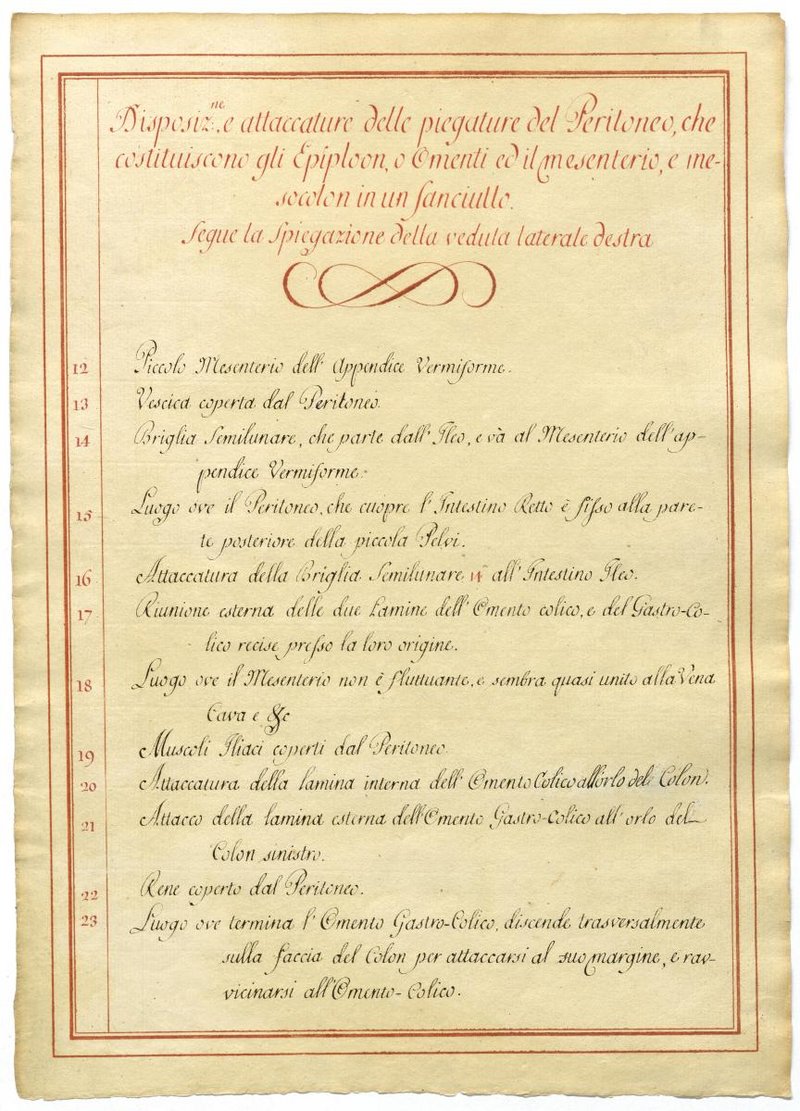 Disposiz.ne, e attaccature delle piegature del Peritoneo, che
costituiscono gli Epiploon, o Omenti ed il mesenterio, e me-
socolon in un fanciullo.
Segue la Spiegazione della veduta laterale destra
12 Piccolo Mesenterio dell' Appendice Vermiforme.
13 Vescica coperta dal Peritoneo.
14 Briglia Semilunare, che parte dall' Ileo, e và al Mesenterio dell' ap-
pendice Vermiforme.
15 Luogo ove il Peritoneo, che cuopre l' Intestino Retto è fisso alla pare-
te posteriore della piccola Pelvi.
16 Attaccatura della Briglia Semilunare 14 all' Intestino Ileo.
17 Riunione esterna delle due Lamine dell' Omento colico, e del Gastro-Co-
lico recise presso la loro origine.
18 Luogo ove il Mesenterio non è fluttuante, e sembra quasi unito alla Vena
Cava e &c
19 Muscoli Iliaci coperti dal Peritoneo
20 Attaccatura della lamina interna dell' Omento Colico all'orlo del Colon.
21 Attacco della lamina esterna dell' Omento Gastro-Colico all' orlo del
Colon sinistro.
22 Rene coperto dal Peritoneo.
23 Luogo ove termina l' Omento Gastro-Colico, discende trasversalmente
sulla faccia del Colon per attaccarsi al suo margine, e rav-
vicinarsi all' Omento-Colico.